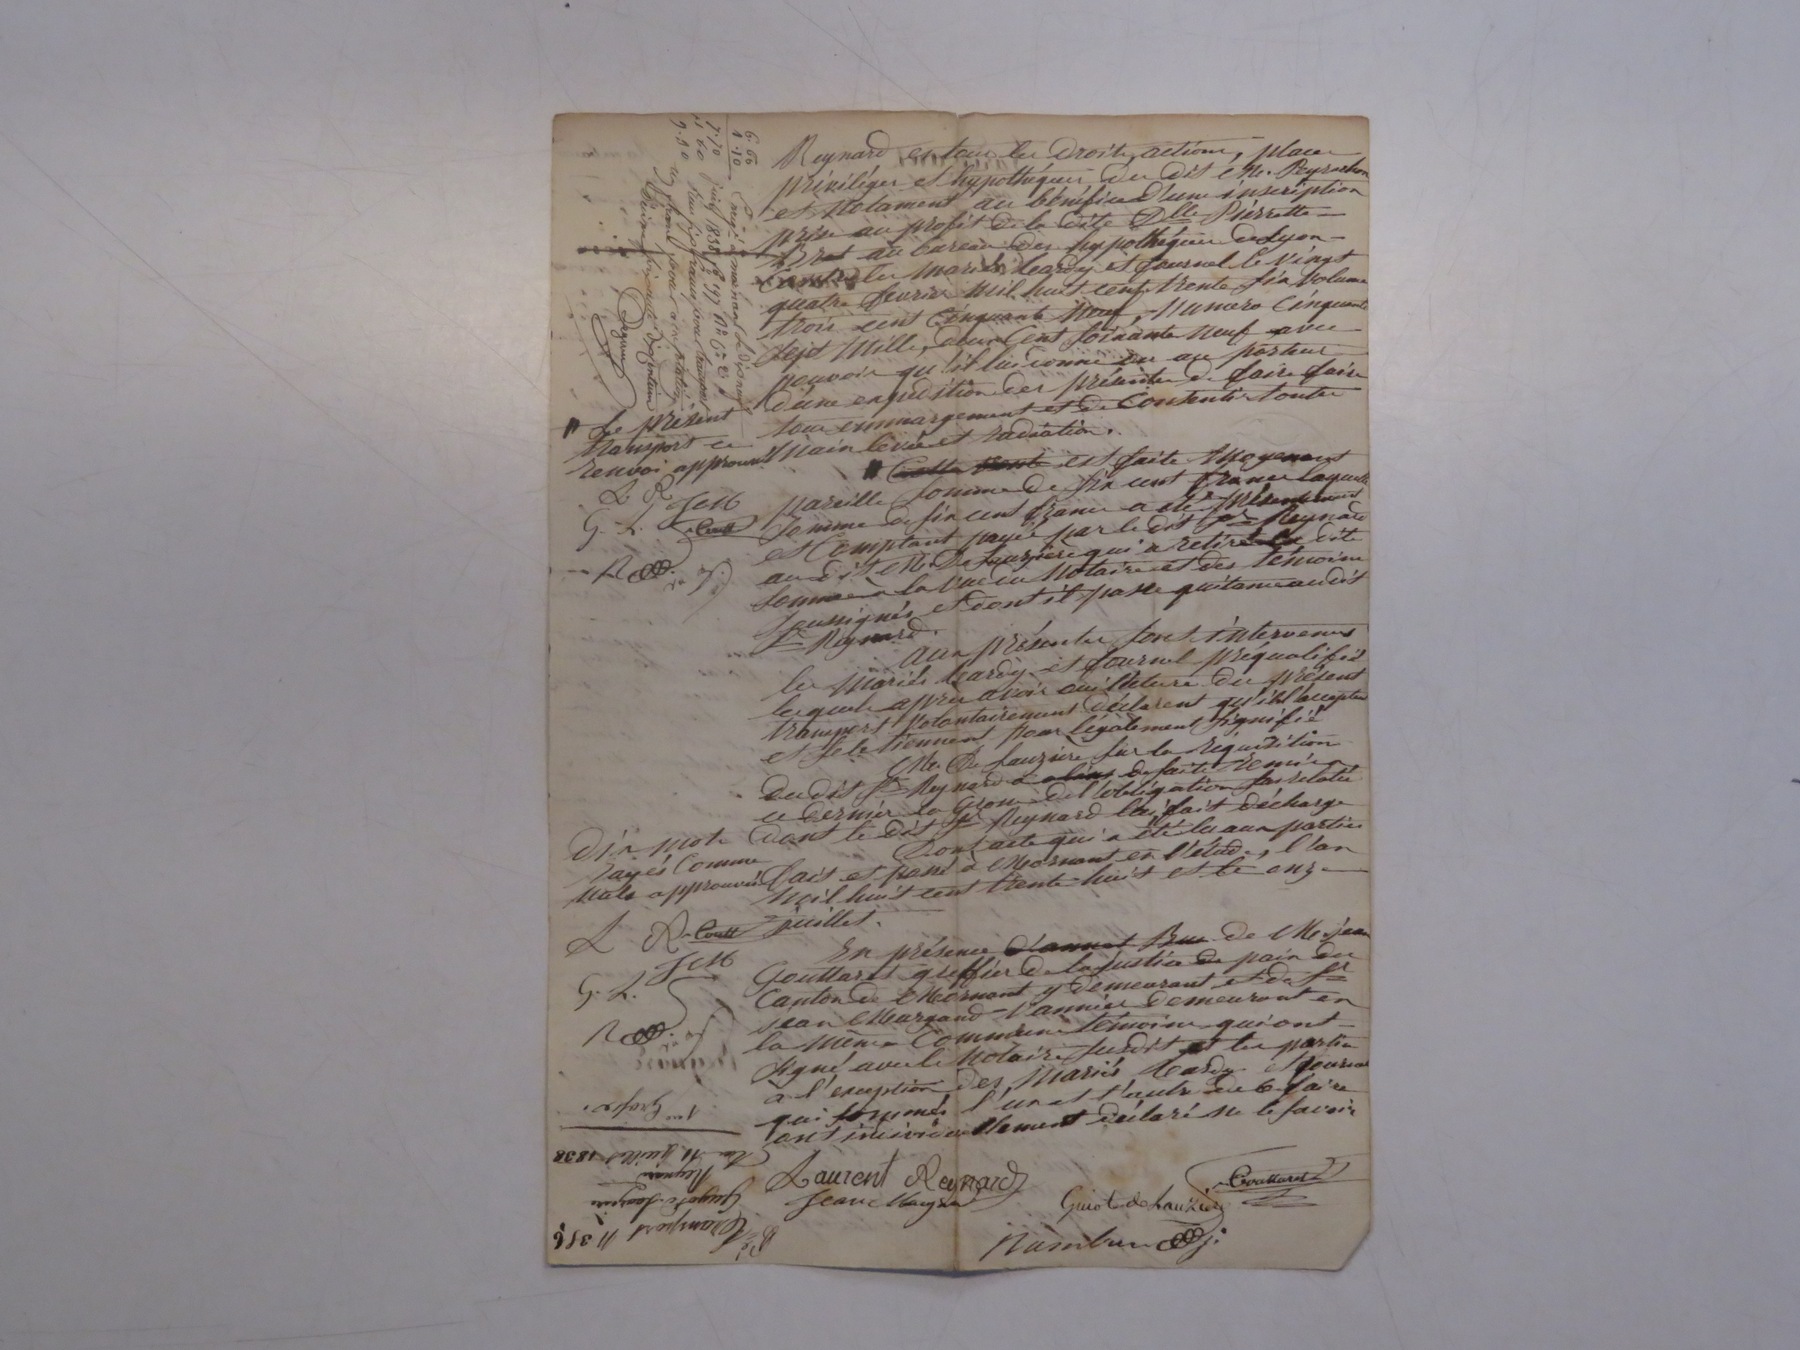 Reynard en tous les droits, actions, places
priviléges et hypothéques du dit M. Peyrachon
et notament au bénéfice d'une inscription
prise au profit de la dite Dlle Pierrette
Bret au bureau des hypothéques de Lyon
contre les mariés Hardy et fournel le vingt
quatre fevrier mil huit cent trente six volume
trois cent cinquante neuf, numero cinquante
sept mille, deux cent soixante neuf avec
pouvoir qu'il lui donne ou au porteur
d'une expédition des présentes de faire faire
tous emmargement et de consentir toutes
main levée et radiation.
Cette vente est faite moyenant
pareille somme de six cent francs laquelle
somme de six cent francs a été présentement
et comptant payée par le dit Sr Reynard
au dit M. De Lauzière qui a retiré la dite
somme à la vue du notaire et des témoins
soussignés et dont il passe quitance au dit
Sr Reynard.
Aux présentes sont intervenus
les mariés Hardy et fournel préqualifiés
lesquels apres avoir oui lecture du présent
transport volontairement déclarent qu'ils l'acceptent
et se le tiennent pour légalement signifié
M. De Lauzière sur la réquisition
du dit Sr Reynard a de suite remis à
ce dernier la Grosse de l'obligation sus relatée
dont le dit Sr Reynard lui fait décharge
Dont acte qui a été lu aux parties
fait et passé à Mornant en l'étude, l'an
mil huit cent trente huit et le onze
juillet.
En présence de M. jean
Gouttaret greffier de la justice de paix du
canton de Mornant y demeurant et de Sr
jean Murgand vannier demeurant en
la même commune témoins qui ont
signé avec le notaire susdit et les parties
à l'exception des mariés Hardy fournel
qui sommés l'un et l'autre de le faire
ont individuellement déclaré ne le savoir
Laurent Reynard
Guiot de Lauzière
le présent
transport ce
renvoi approuvé
L R JeM
G. L.
Dix mots
rayés comme
nuls approuvés
L R
JeM
G. L.
6.60
1.10
7.70
1re Grosse
Du 11 juillet 1838
Reynard
Transport